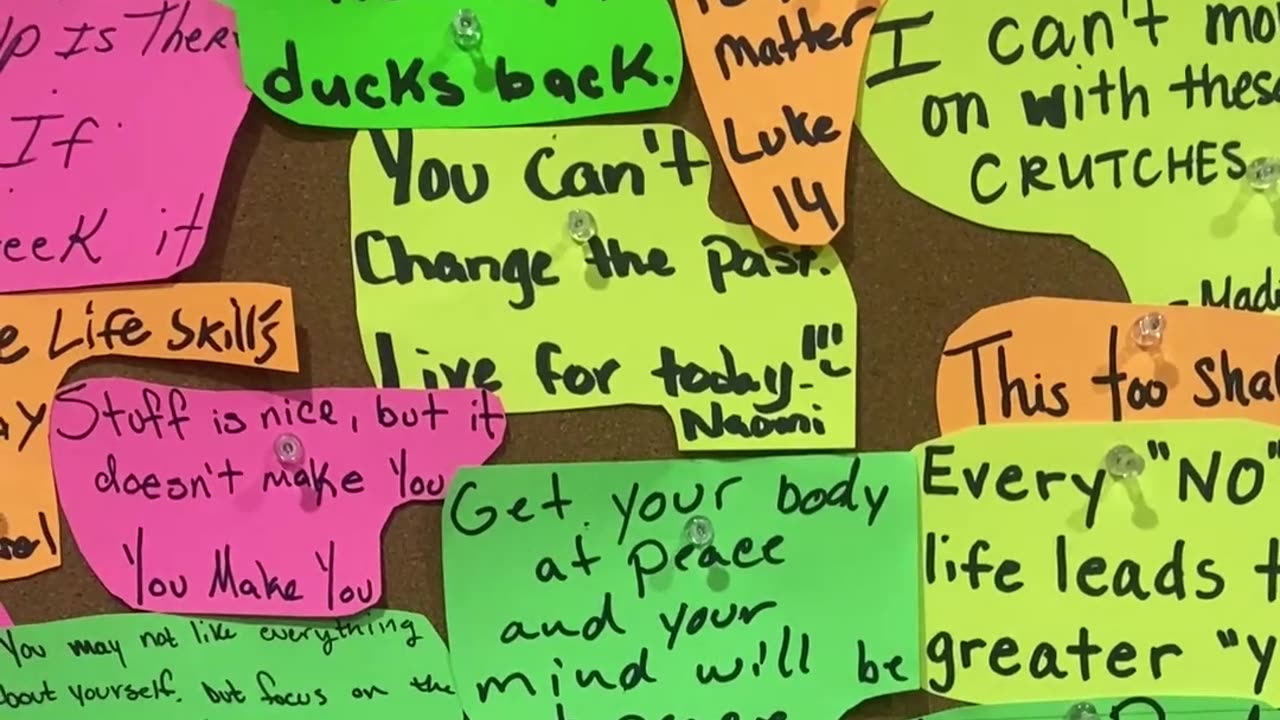 Is There
If
it
ducks back.
matter
Luke
14
I can't
on with these
CRUTCHES
You Can't
Change the past.
Live for today!!!
- Naomi
Life Skills
This too
Stuff is nice, but it
doesn't make You
You Make You
Get your body
at peace
and your
mind will be
Every "NO"
life leads
greater
You may not like everything
about yourself. but focus on the